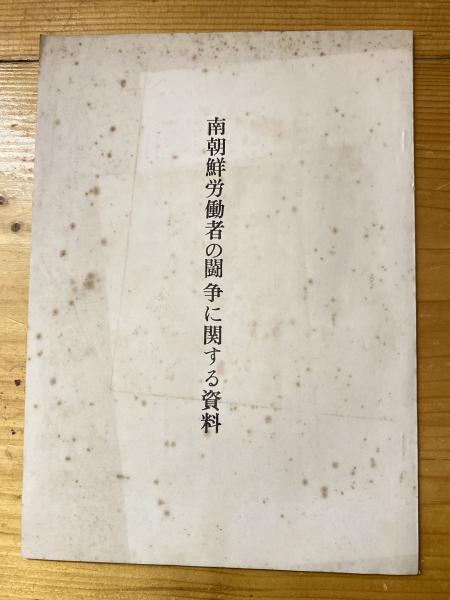 南朝鮮労働者の闘争に関する資料